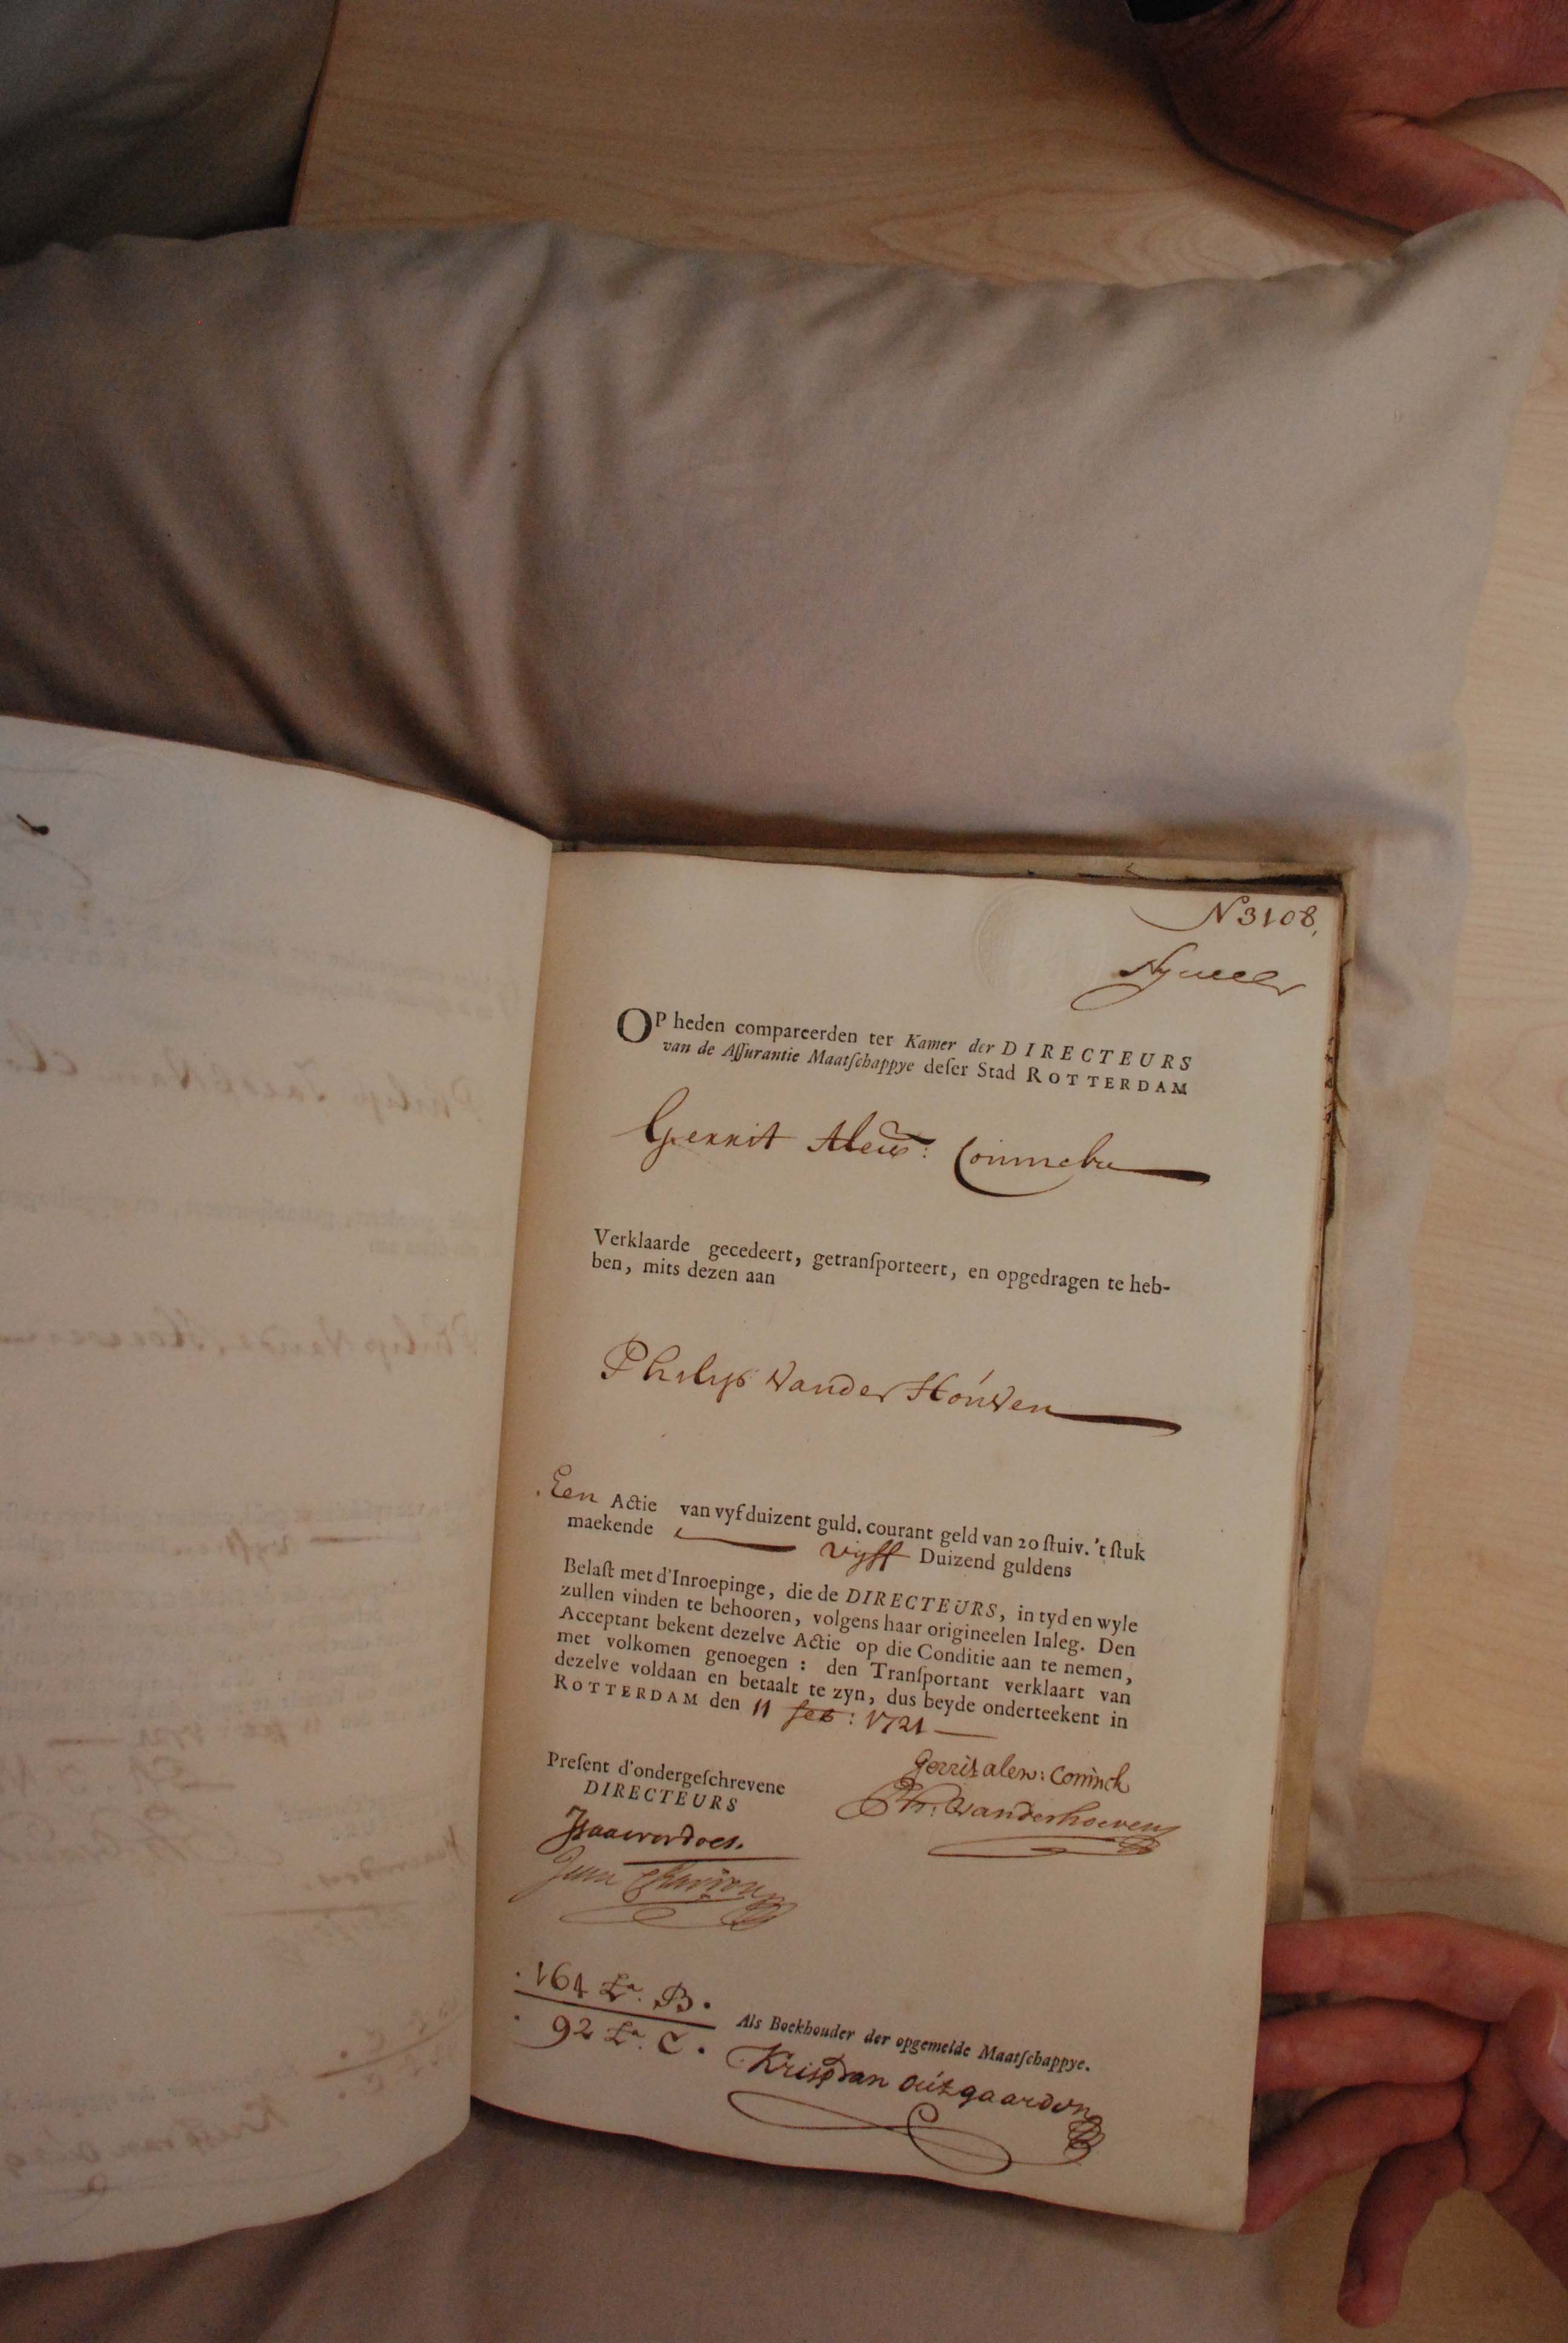 N 3108.
OP heden compareerden ter Kamer der DIRECTEURS
van de Aſſurantie Maatſchappye deſer Stad ROTTERDAM
Gerrit
Verklaarde gecedeert, getranſporteert, en opgedragen te heb-
ben, mits dezen aan
Philip Vander Hoúven
Een Actie van vyf duizent guld. courant geld van 20 ſtuiv. 't ſtuk
maekende vyff Duizend guldens
Belaſt met d'Inroepinge, die de DIRECTEURS, in tyd en wyle
zullen vinden te behooren, volgens haar origineelen Inleg. Den
Acceptant bekent dezelve Actie op die Conditie aan te nemen,
met volkomen genoegen : den Tranſportant verklaart van
dezelve voldaan en betaalt te zyn, dus beyde onderteekent in
ROTTERDAM den 11 feb : 1721
Preſent d'ondergeſchrevene
DIRECTEURS
Gerrit alew: Coninck
Ph: Vanderhoeven
164 Lª. B.
92 Lª. C.
Als Boekhouder der opgemelde Maatſchappye.
Krisp van